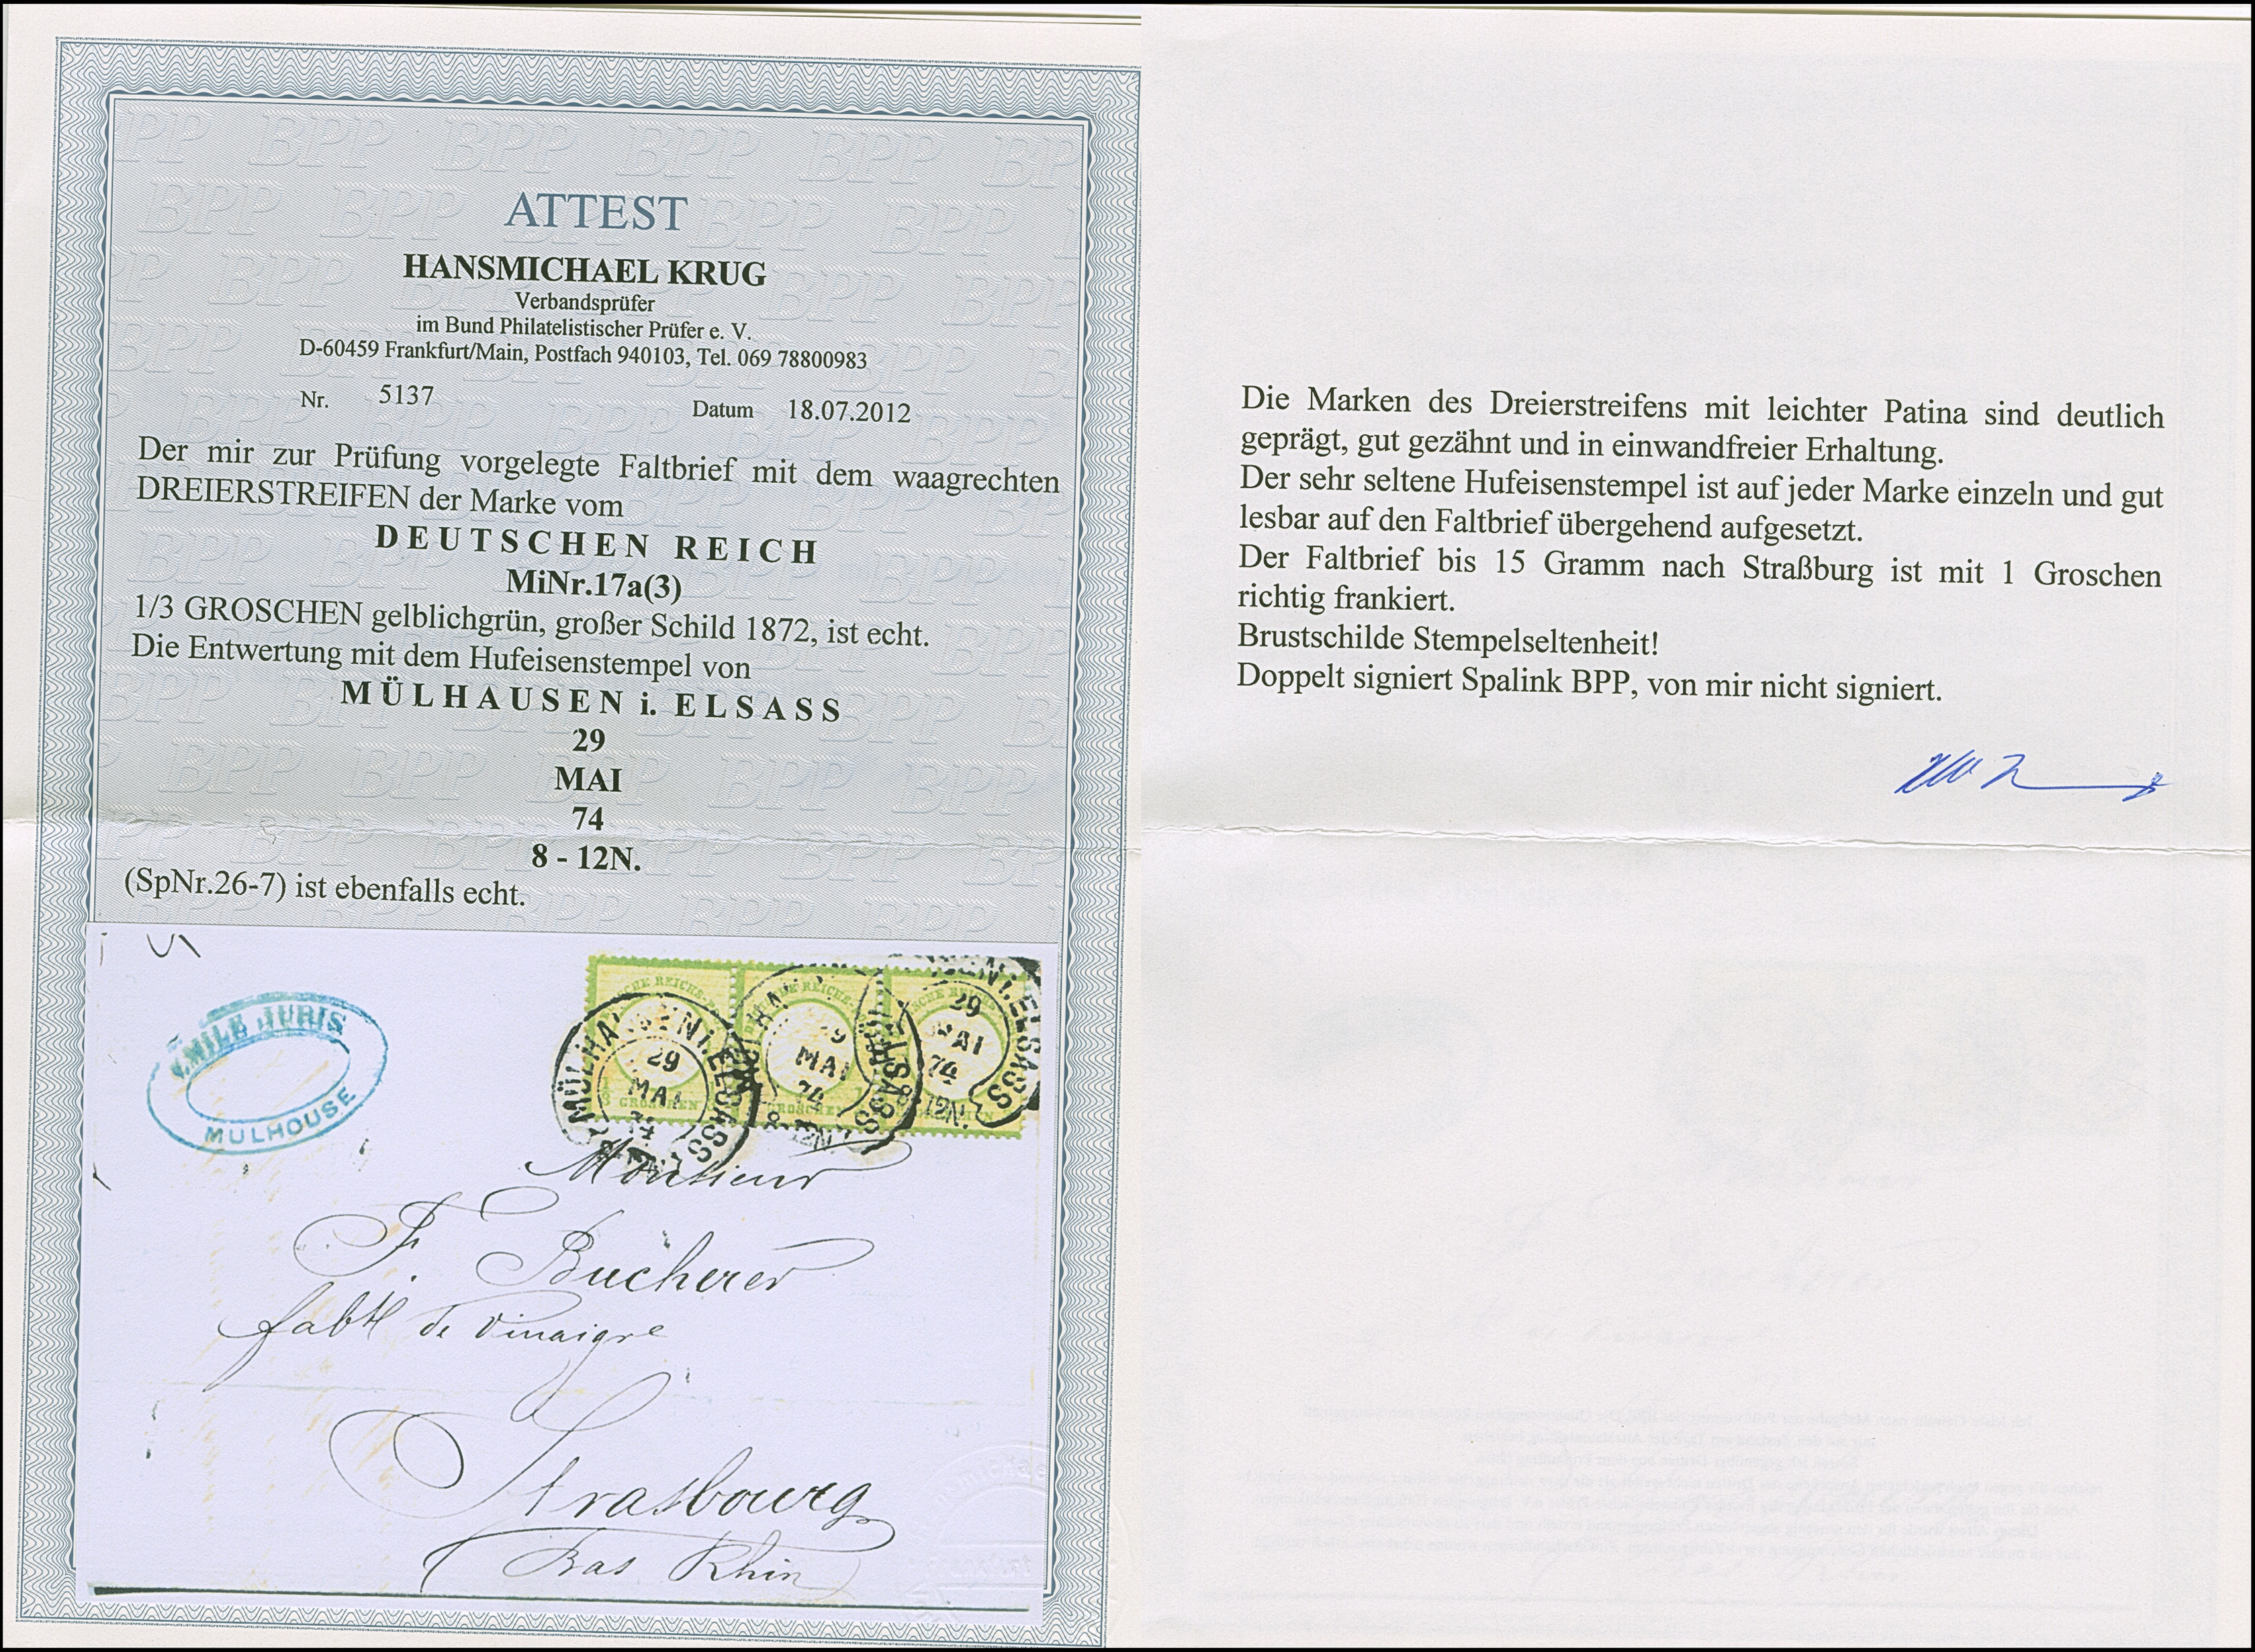 ATTEST
HANSMICHAEL KRUG
Verbandsprüfer
im Bund Philatelistischer Prüfer e. V.
D-60459 Frankfurt/Main, Postfach 940103, Tel. 069 78800983
Nr. 5137 Datum 18.07.2012
Der mir zur Prüfung vorgelegte Faltbrief mit dem waagrechten
DREIERSTREIFEN der Marke vom
DEUTSCHEN REICH
MiNr.17a(3)
1/3 GROSCHEN gelblichgrün, großer Schild 1872, ist echt.
Die Entwertung mit dem Hufeisenstempel von
MÜLHAUSEN i. ELSASS
29
MAI
74
8 - 12N.
(SpNr.26-7) ist ebenfalls echt.
EMILE JURIS
MULHOUSE
29
MAI
74
29
MAI
74
8-12N.
Monsieur
F. Bucherer
fabt de vinaigre
Strasbourg
Bas Rhin
Die Marken des Dreierstreifens mit leichter Patina sind deutlich
geprägt, gut gezähnt und in einwandfreier Erhaltung.
Der sehr seltene Hufeisenstempel ist auf jeder Marke einzeln und gut
lesbar auf den Faltbrief übergehend aufgesetzt.
Der Faltbrief bis 15 Gramm nach Straßburg ist mit 1 Groschen
richtig frankiert.
Brustschilde Stempelseltenheit!
Doppelt signiert Spalink BPP, von mir nicht signiert.